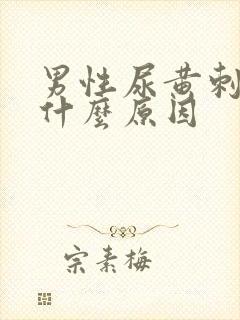 男性尿黄刺
什麼原因
宗素梅